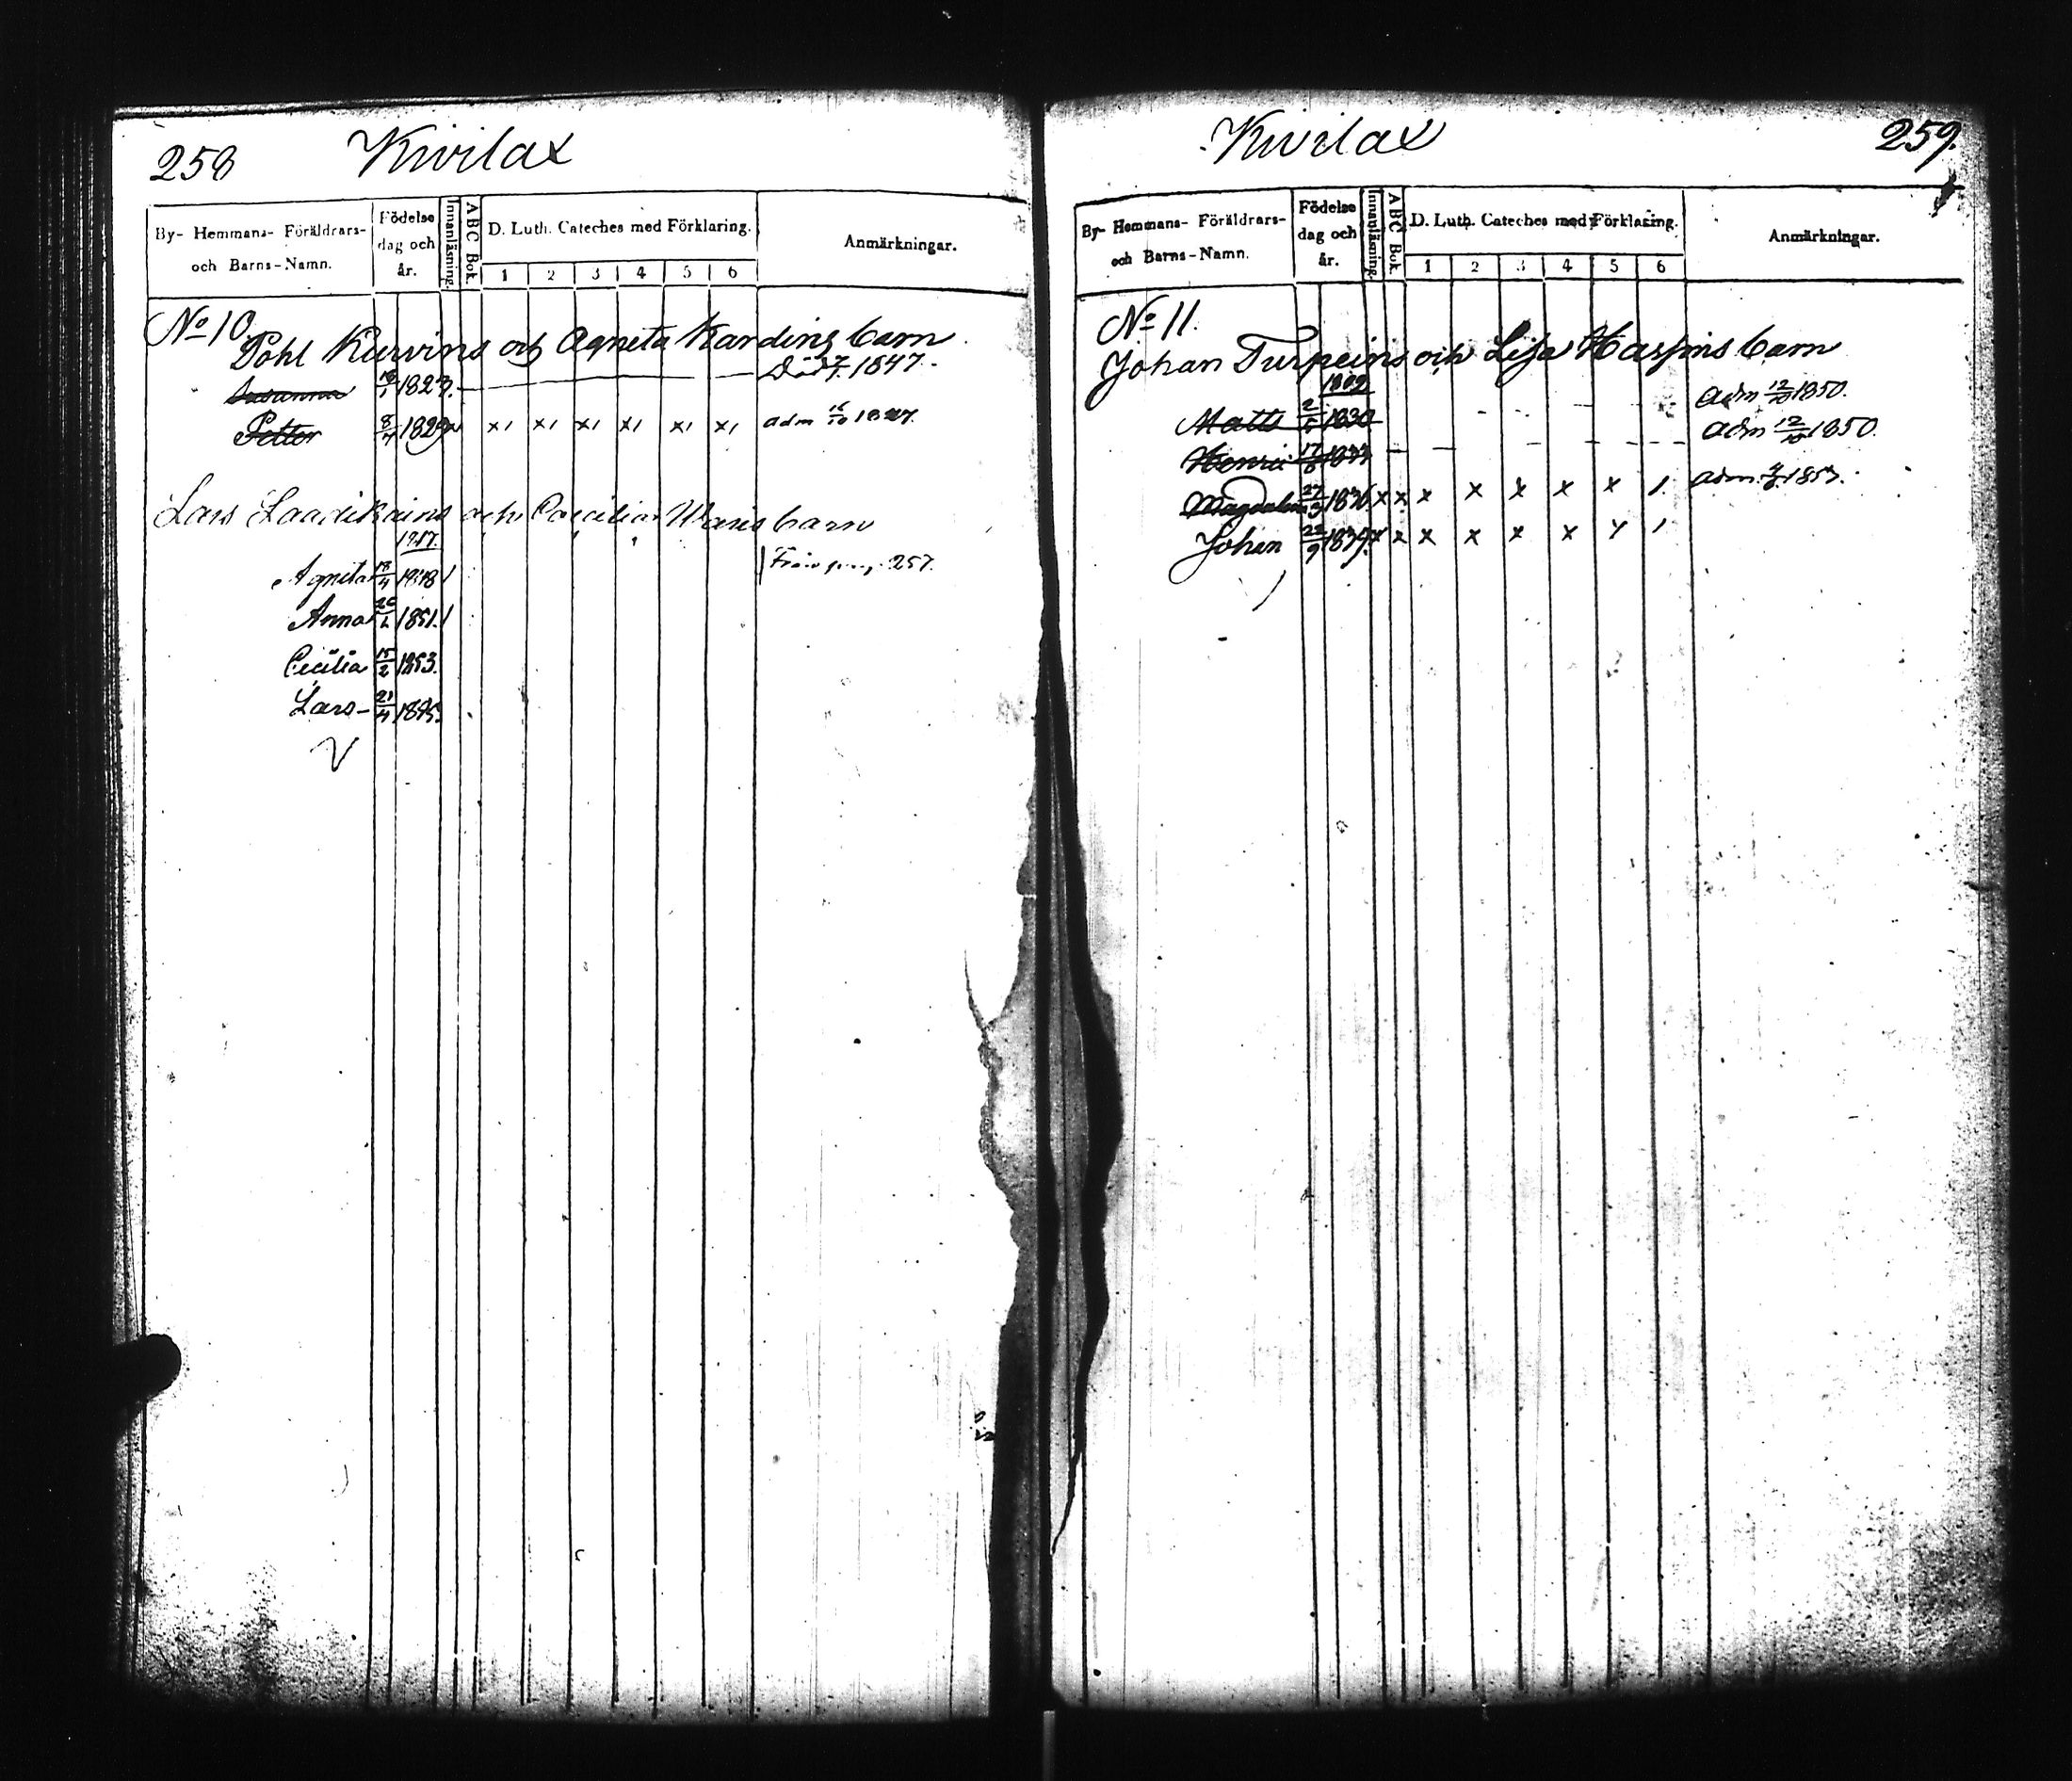 258 Kivilax
By- Hemmans- Föräldrars- och Barns-Namn. Födelse dag och år. Innanläsning. ABC Bok. D. Luth. Cateches med Förklaring. 1 2 3 4 5 6 Anmärkningar.
No 10.
Pohl Kurvins och Agneta Kardins barn
Susanna 1827. Död 1847.
Petter 8/4 1829 x x x x x x x adm 16/10 1847.
Lars Laadikains och Caecilia Waris barn
Agneta 18/4 1848 Från pag. 257.
Anna 1851.
Cecilia 15/2 1853.
Lars 21/4
Kivilax 259.
By- Hemmans- Föräldrars- och Barns-Namn. Födelse dag och år. Innanläsning. ABC Bok. D. Luth. Cateches med Förklaring. 1 2 3 4 5 6 Anmärkningar.
No 11.
Johan Turpeins och Lisa Haspins barn
1802
Matts 1830 adm 12/10 1850.
Henric 17/8 adm 12/10 1850.
Magdalena 27/3 1836 x x x x x x x 1. adm. 1853.
Johan 22/9 1839. x x x x x x